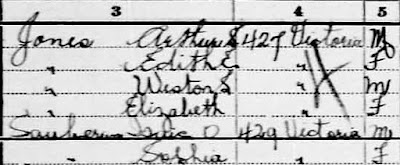 3 4 5
Jones Arthur S 427 Victoria M
" Edith E " F
" Weston S " M
" Elizabeth " F
Isaac D 429 Victoria M
" Sophia F